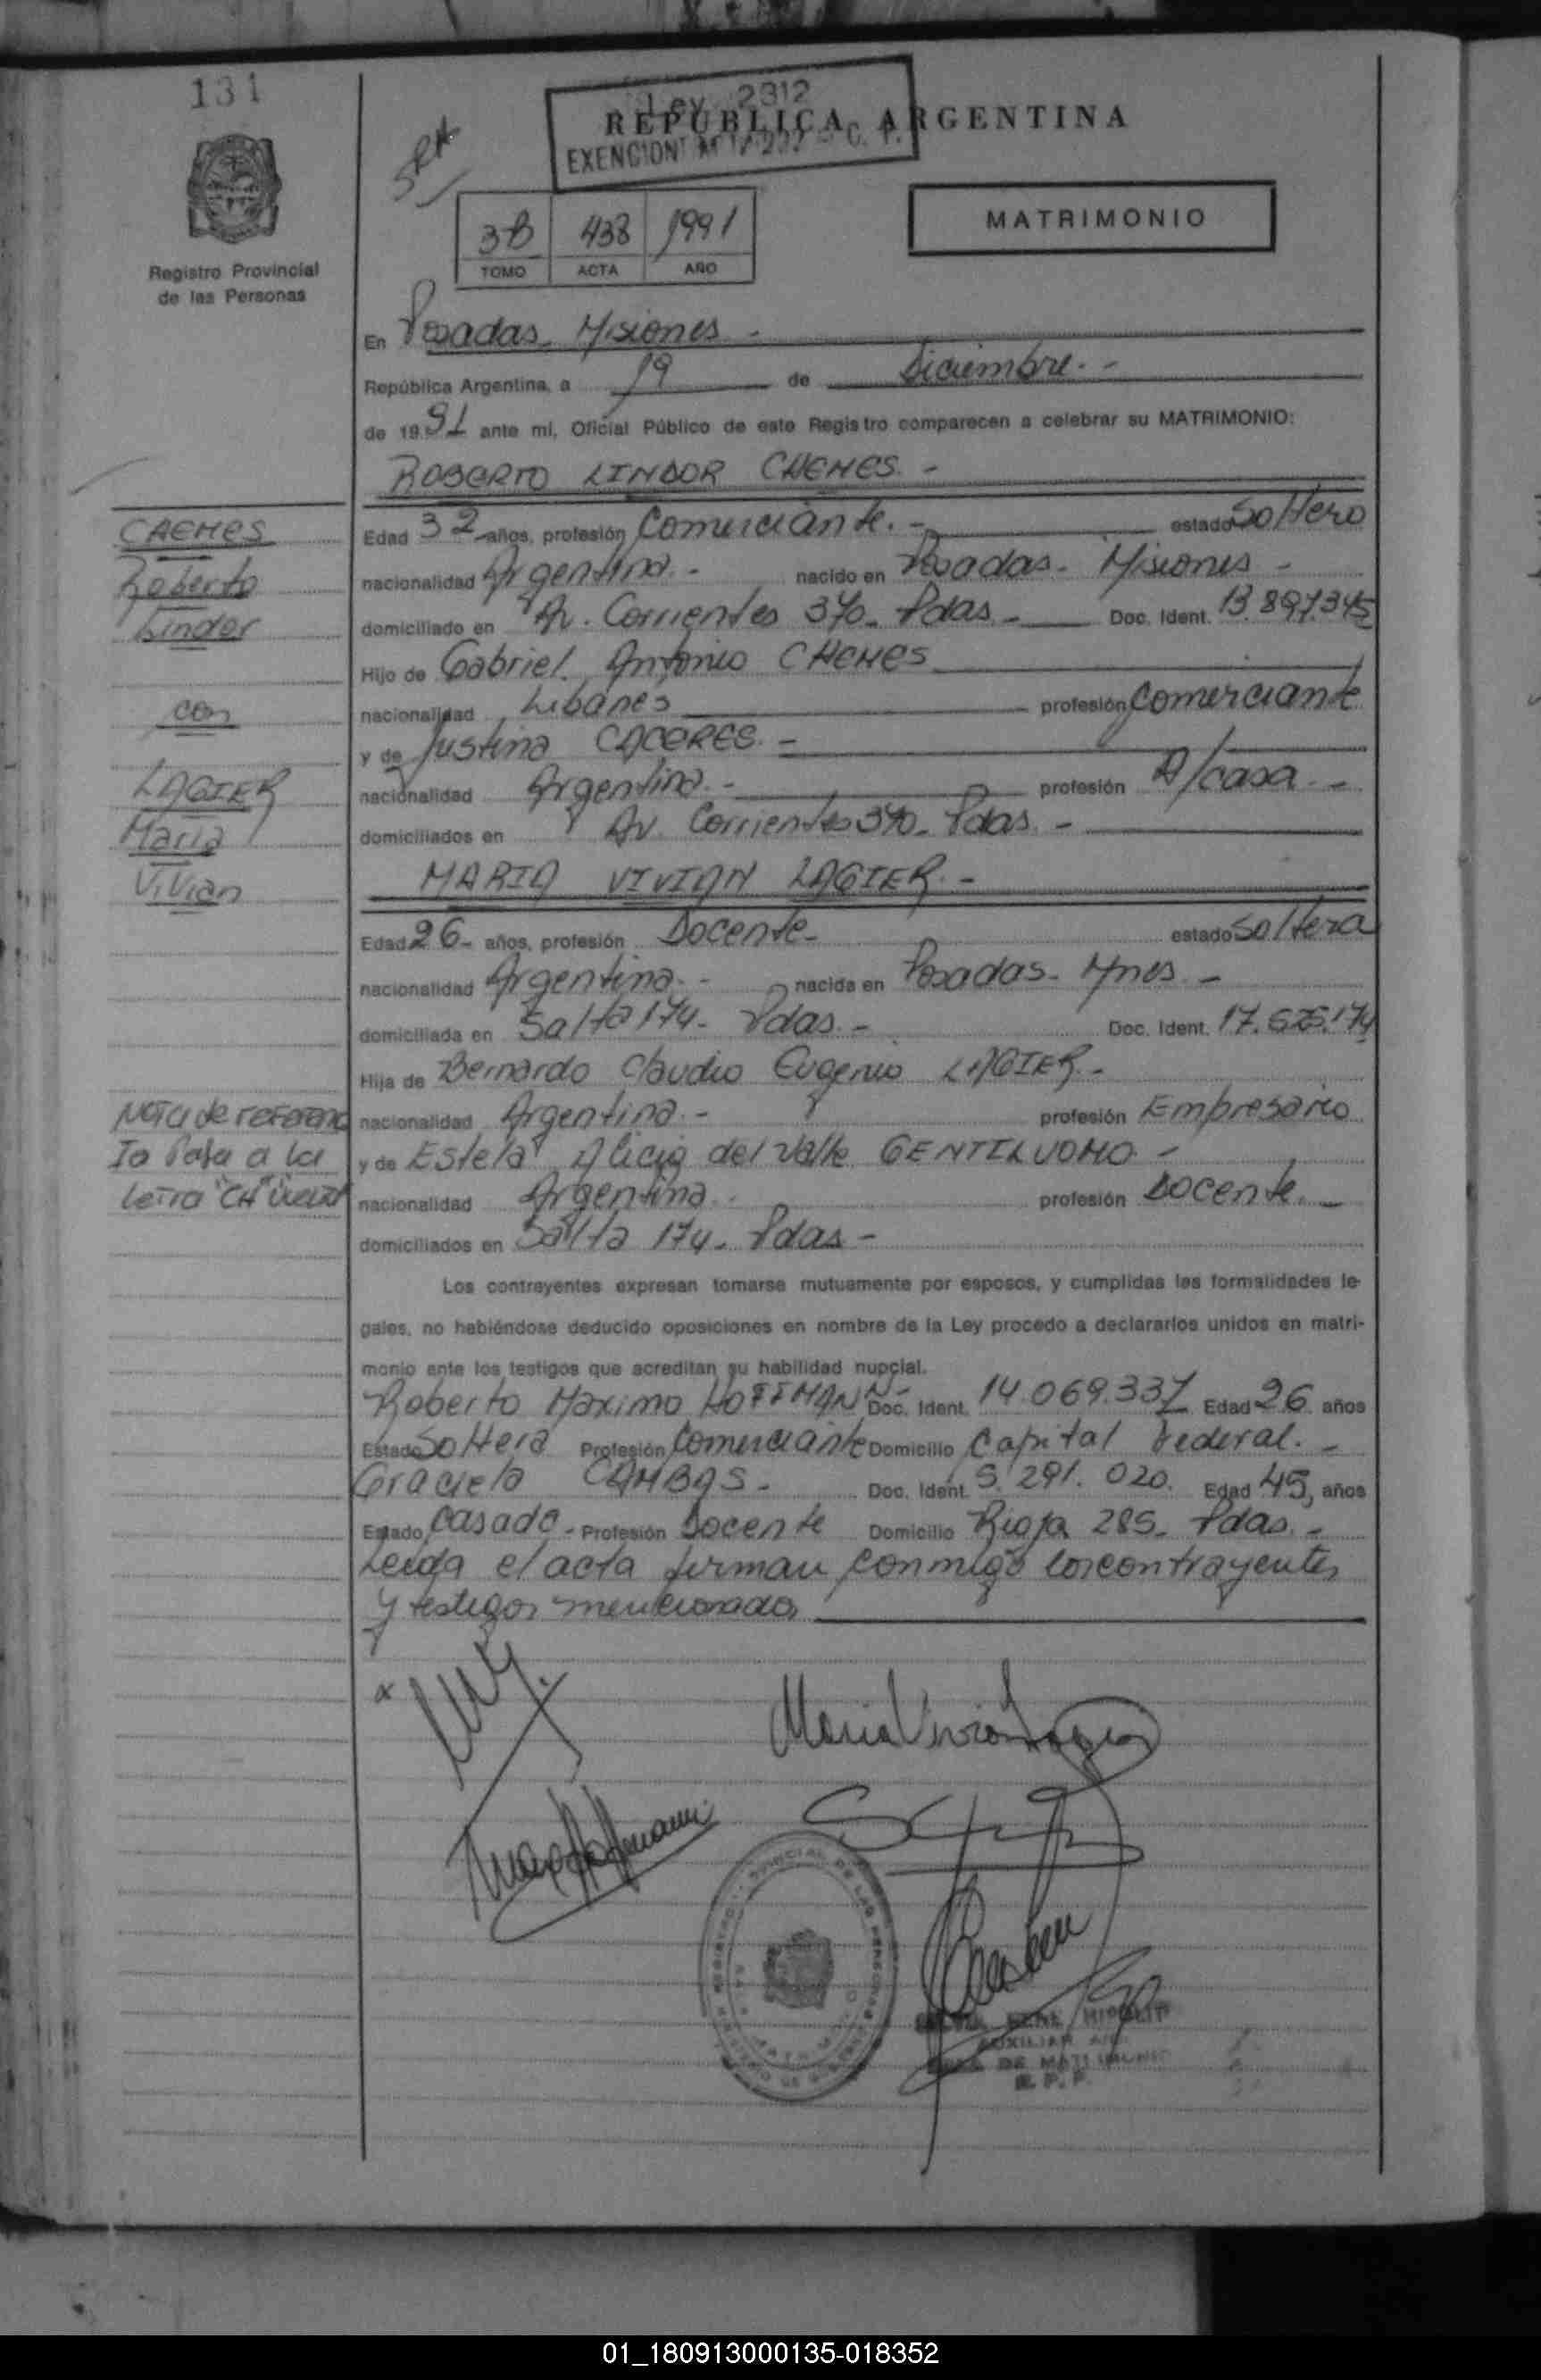 131
Ley 2312
REPUBLICA ARGENTINA
EXENCION
MATRIMONIO
3B 438 1991
TOMO ACTA AÑO
Registro Provincial
de las Personas
En Posadas - Misiones -
República Argentina, a 19 de Diciembre. -
de 1991 ante mi, Oficial Público de este Registro comparecen a celebrar su MATRIMONIO:
ROBERTO LINDOR CHEMES -
CAEMES
Roberto
Lindor
con
LAGIER
Maria
Vivian
Edad 32 años, profesión Comerciante. - estado Soltero
nacionalidad Argentina. - nacido en Posadas - Misiones -
domiciliado en Av. Corrientes 370 - Pdas - Doc. Ident. 13.897.345
Hijo de Gabriel Antonio CHEMES
nacionalidad Libanes profesión Comerciante
y de Justina CACERES. -
nacionalidad Argentina. - profesión A/casa. -
domiciliados en Av. Corrientes 370 - Pdas. -
MARIA VIVIAN LAGIER. -
Edad 26 - años, profesión Docente - estado Soltera
nacionalidad Argentina. - nacida en Posadas - Mnes -
domiciliada en Salta 174 - Pdas. - Doc. Ident. 17.
Hija de Bernardo Claudio Eugenio LAGIER. -
nacionalidad Argentina. - profesión Empresario
y de Estela Alicia del Valle GENTILUOMO -
nacionalidad Argentina. profesión Docente. -
domiciliados en Salta 174 - Pdas -
Nota de referenc
Ia Pasa a la
letra "CH"
Los contrayentes expresan tomarse mutuamente por esposos, y cumplidas las formalidades le-
gales, no habiéndose deducido oposiciones en nombre de la Ley procedo a declararlos unidos en matri-
monio ante los testigos que acreditan su habilidad nupcial.
Roberto Maximo HOFFMANN - Doc. Ident. 14.069.337 Edad 26 años
Estado Soltero Profesión Comerciante Domicilio Capital Federal. -
Graciela CAMBAS - Doc. Ident. 5.291.020. Edad 45, años
Estado Casado - Profesión Docente Domicilio Rioja 285 - Pdas. -
Leida el acta firman conmigo los contrayentes
y testigos mencionados
Maria Vivian Lagier
Max Hoffmann
AUXILIAR
DE MATRIMONIO
R. P. P.
01_180913000135-018352